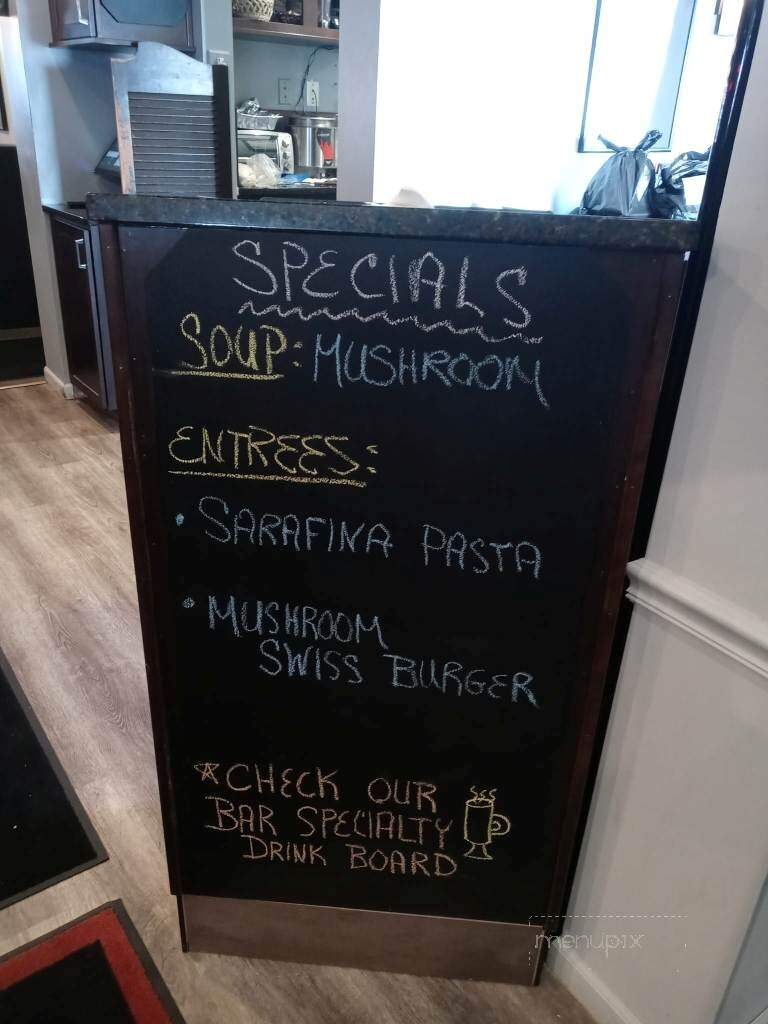 SPECIALS
SOUP: MUSHROOM
ENTREES:
• SARAFINA PASTA
• MUSHROOM
SWISS BURGER
☆ CHECK OUR
BAR SPECIALTY
DRINK BOARD
menupix